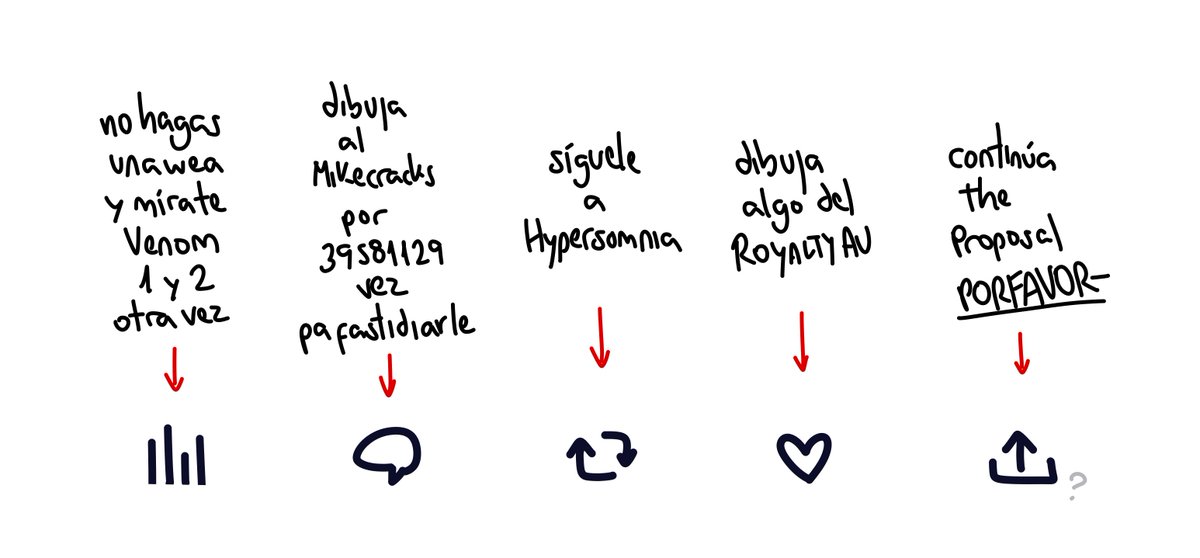 no hagas
una wea
y mírate
Venom
1 y 2
otra vez
dibuja
al
Mikecracks
por
39581129
vez
pa fastidiarle
síguele
a
Hypersomnia
dibuja
algo del
ROYALTY AU
continúa
the
Proposal
PORFAVOR-
?